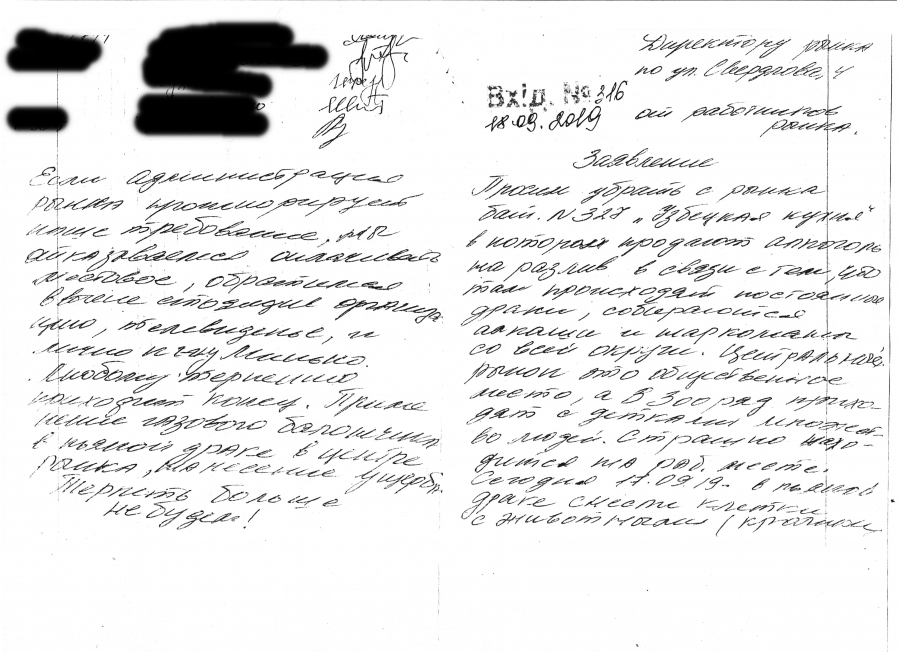 Директору рынка
по ул. Свердлова, 4
Вхід. № 316
18.09.2019
от работников
рынка.
Заявление
Просим убрать с рынка
бат. N 327 „Узбецкая кухня"
в котором продают алкоголь
на разлив в связи с тем, что
там происходят постоянно
драки, собираются
алкаши и наркоманы
со всей округи. Центральный
рынок это общественное
место, а в 300 ряд прихо-
дят с детками множест-
во людей. Страшно нахо-
дится на раб. месте.
Сегодня 17.09.19г. в пьяной
драке снесли клетки
с животными (кролики)
Если администрация
рынка проигнорирует
наше требование, мы
отказываемся оплачивать
местовое, обратимся
в выше стоящие организа
цию, телевиденье, и
лично к
Любому терпению
приходит конец. Приме
нение газового балончика
в пьяной драке в центре
рынка, нанесение ущерба.
Терпеть больше
не будем!